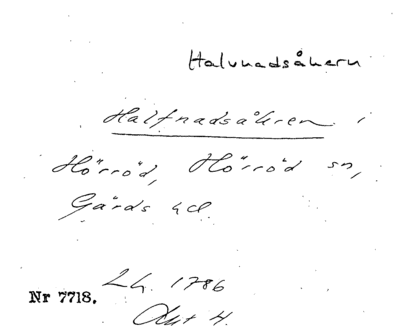 Halvnadsåkern
Halfnadsåkren i
Hörröd, Hörröd sn,
Gärds hd.
Lh. 1786
Nr 7718.
Akt 4.